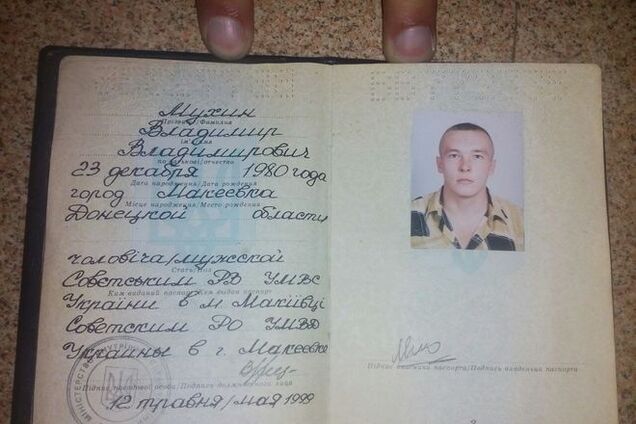 Мухин
Прізвище/Фамилия
Владимир
ім'я/имя
Владимирович
по батькові/отчество
23 декабря 1980 года
Дата народження/Дата рождения
город Макеевка
Місце народження/Место рождения
Донецкой области
чоловіча/мужской
Стать/Пол
Совєтським РВ УМВС
Ким виданий паспорт/Кем выдан паспорт
України в м. Макіївці
Советским РО УМВД
Украины в г. Макеевке
Підпис посадової особи/Подпись должностного лица
12 травня/мая 1999
Підпис власника паспорта/Подпись владельца паспорта